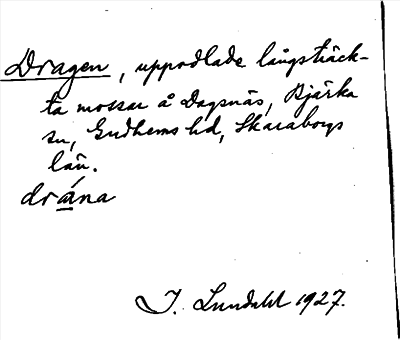 Dragen, uppodlade långsträck-
ta mossar å Dagsnäs, Bjärka
sn, Gudhems hd, Skaraborgs
län.
drá̱na
I. Lundahl 1927.